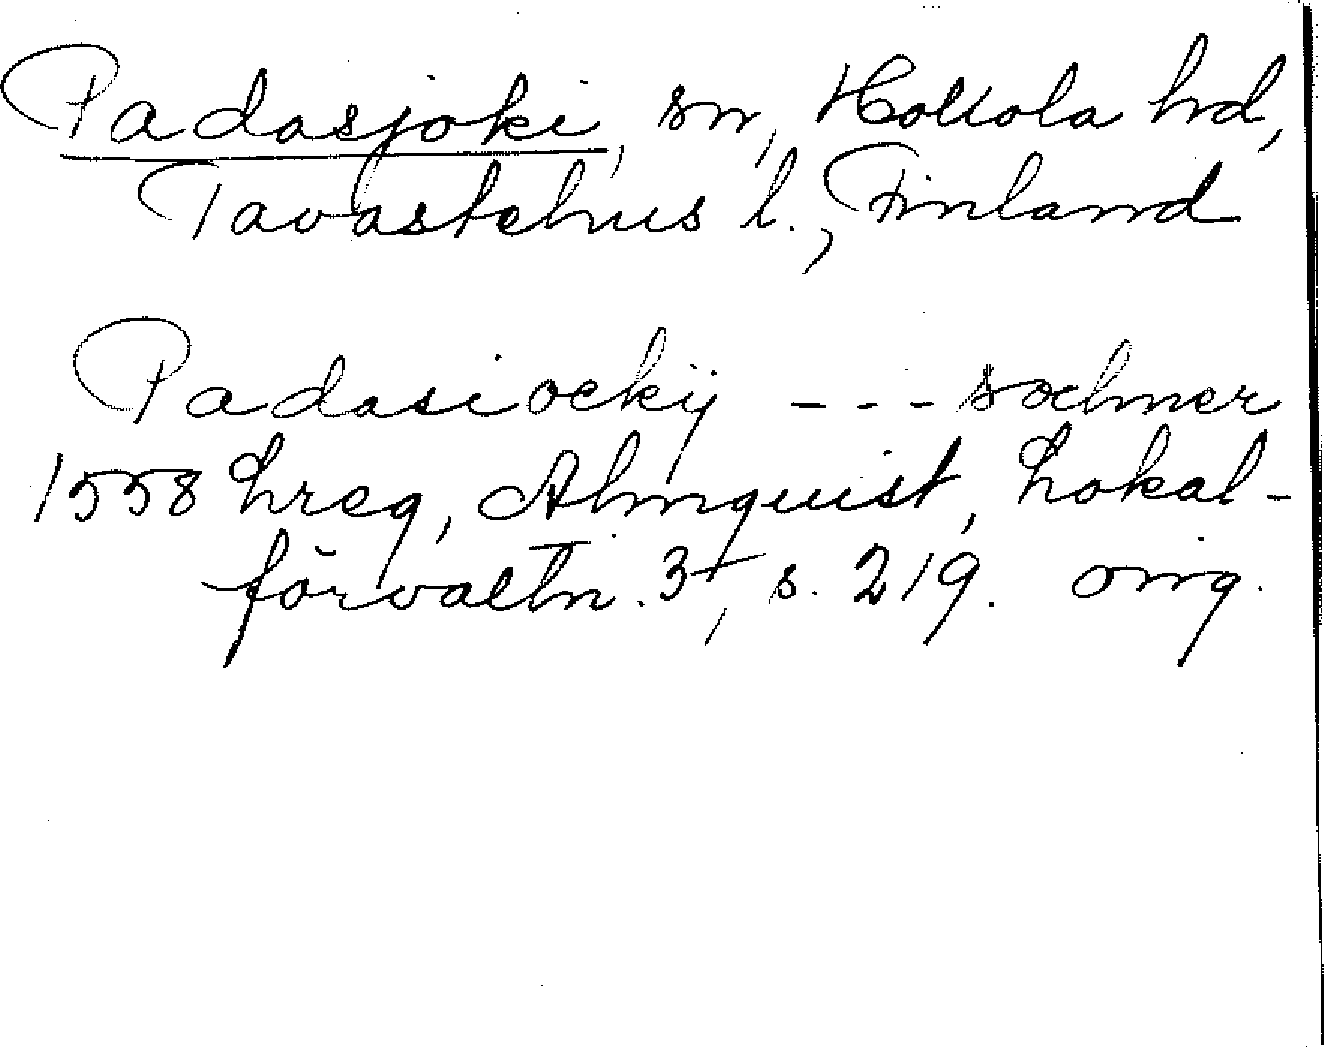 Padasjoki, sn, Hollola hd,
Tavastehus l., Finland
Padasiockij --- sochner
1558 hreg, Almquist, Lokal-
förvaltn. 3, s. 219. omg.